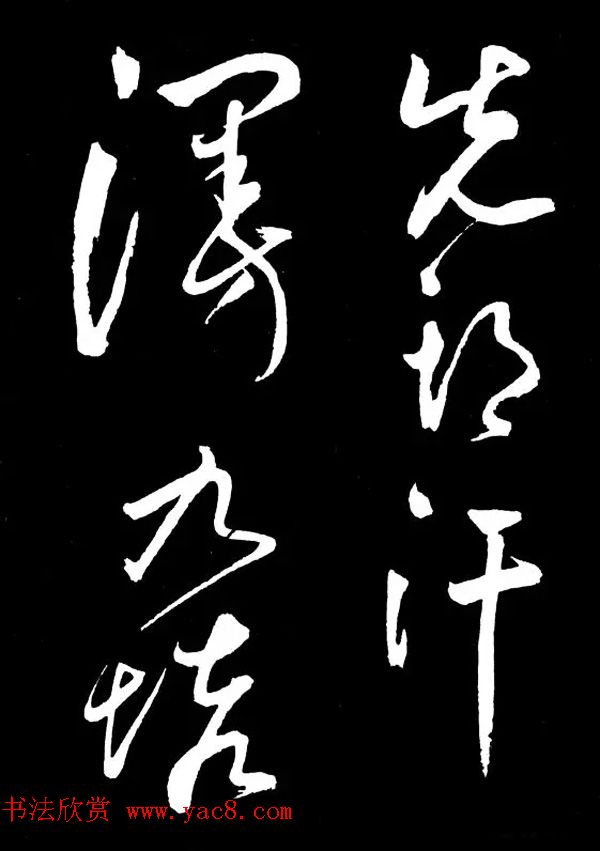 先期汗
漫九垓
书法欣赏 www.yac8.com